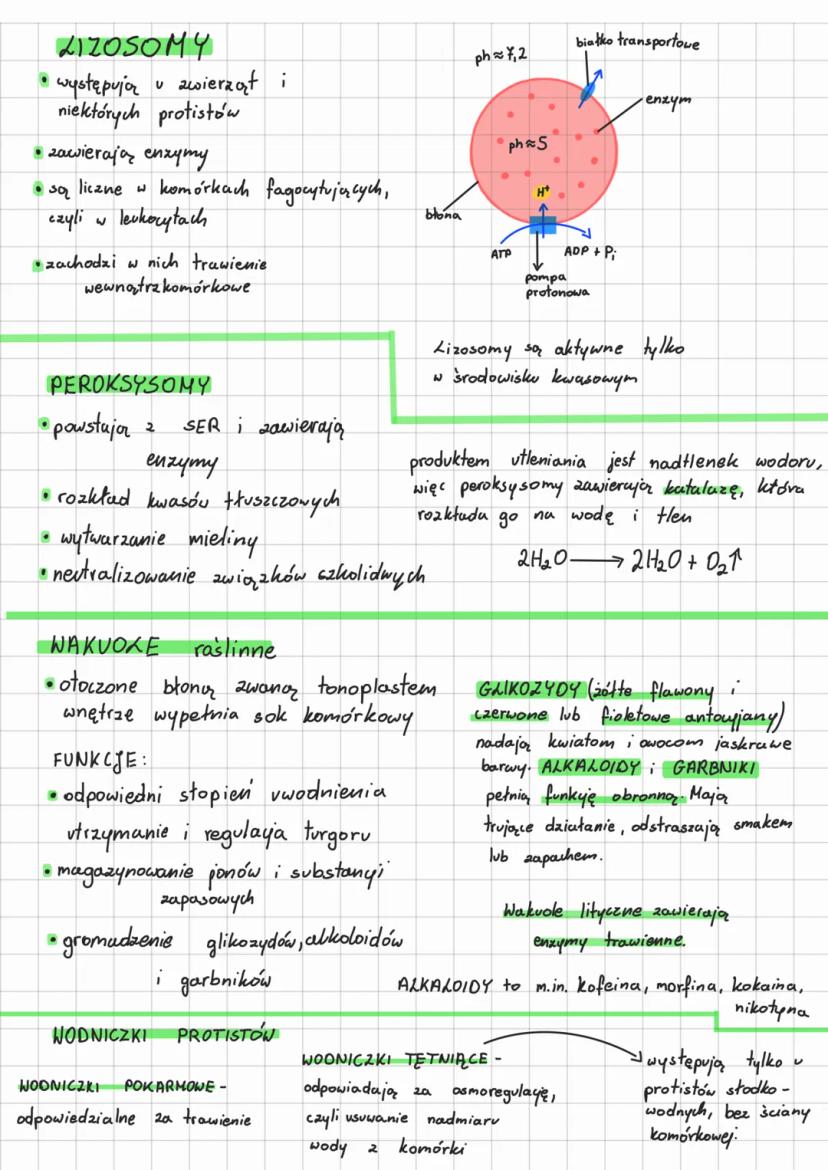 LIZOSOMY
• występują u zwierząt i
niektórych protistów
• zawierają enzymy
• są liczne w komórkach fagocytujących,
czyli w leukocytach
• zachodzi w nich trawienie
wewnątrzkomórkowe
ph≈7,2
białko transportowe
enzym
ph≈5
H⁺
błona
ATP
ADP + Pi
pompa
protonowa
Lizosomy są aktywne tylko
w środowisku kwasowym
PEROKSYSOMY
• powstają z SER i zawierają
enzymy
• rozkład kwasów tłuszczowych
• wytwarzanie mieliny
• neutralizowanie związków szkolidwych
produktem utleniania jest nadtlenek wodoru,
więc peroksysomy zawierają katalazę, która
rozkłada go na wodę i tlen
2H₂O ⟶ 2H₂O + O₂↑
WAKUOLE roślinne
• otoczone błoną zwaną tonoplastem
wnętrze wypełnia sok komórkowy
FUNKCJE:
• odpowiedni stopień uwodnienia
utrzymanie i regulacja turgoru
• magazynowanie jonów i substancji
zapasowych
• gromadzenie glikozydów, alkoloidów
i garbników
GLIKOZYDY (żółte flawony i
czerwone lub fioletowe antocyjany)
nadają kwiatom i owocom jaskrawe
barwy. ALKALOIDY i GARBNIKI
pełnią funkcję obronną. Mają
trujące działanie, odstraszają smakem
lub zapachem.
Wakuole lityczne zawierają
enzymy trawienne.
ALKALOIDY to m.in. kofeina, morfina, kokaina,
nikotyna
WODNICZKI PROTISTÓW
WODNICZKI POKARMOWE -
odpowiedzialne za trawienie
WODNICZKI TĘTNIĄCE -
odpowiadają za osmoregulację,
czyli usuwanie nadmiaru
wody z komórki
występują tylko u
protistów słodko-
wodnych, bez ściany
komórkowej.